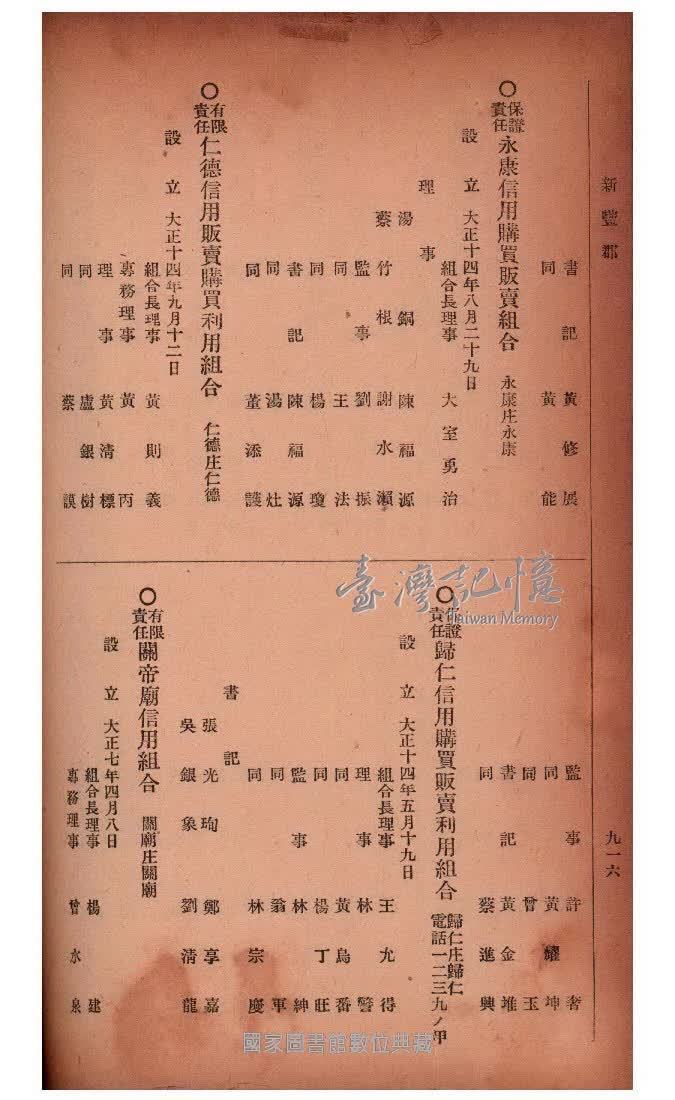 新豐郡
九一六
書記 黃修展
同 黃能
○保證責任永康信用購買販賣組合 永康庄永康
設立 大正十四年八月二十九日
組合長理事 大室勇治
理事
湯銅 陳福源
蔡竹根 謝水瀨
監事 劉振
同 王法
同 楊瓊
書記 陳福源
同 湯灶
同 董添護
○有限責任仁德信用販賣購買利用組合 仁德庄仁德
設立 大正十四年九月十二日
組合長理事 黃則義
專務理事 黃丙
理事 黃清標
同 盧銀樹
同 蔡謨
監事 許奢
同 黃耀坤
同 曾玉
書記 黃金堆
同 蔡進興
○保證責任歸仁信用購買販賣利用組合 歸仁庄歸仁 電話一二三九ノ甲
設立 大正十四年五月十九日
組合長理事 王允得
理事 林警
同 黃烏番
同 楊丁旺
監事 林紳
同 翁軍
同 林宗慶
書記
張光珣 鄭享嘉
吳銀象 劉清龍
○有限責任關帝廟信用組合 關廟庄關廟
設立 大正七年四月八日
組合長理事 楊建
專務理事 曾水泉
臺灣記憶
Taiwan Memory
國家圖書館數位典藏